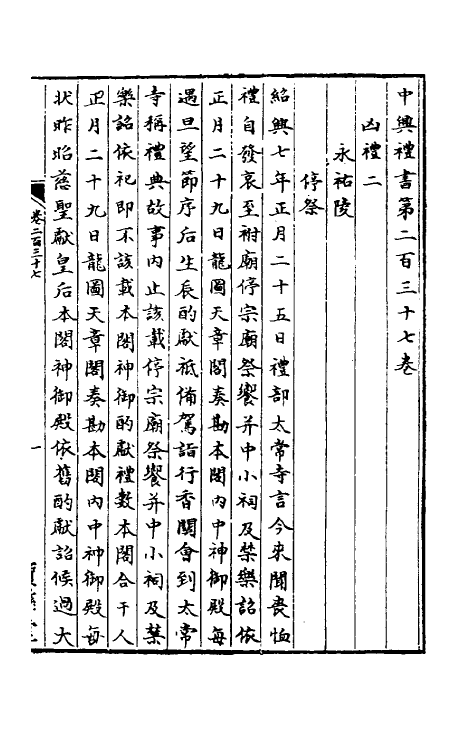 中興禮書第二百三十七卷
凶禮二
永祐陵
停祭
紹興七年正月二十五日禮部太常寺言今來聞喪恤
禮自發哀至祔廟停宗廟祭饗并中小祠及禁樂詔依
正月二十九日龍圖天章閣奏勘本閣內中神御殿每
遇旦望節序后生辰酌獻祗備駕詣行香關會到太常
寺稱禮典故事內止該載停宗廟祭饗并中小祠及禁
樂詔依祀即不該載本閣神御酌獻禮數本閣合干人
正月二十九日龍圖天章閣奏勘本閣內中神御殿每
狀昨昭慈聖獻皇后本閣神御殿依舊酌獻詔候過大
卷二百三十七
一